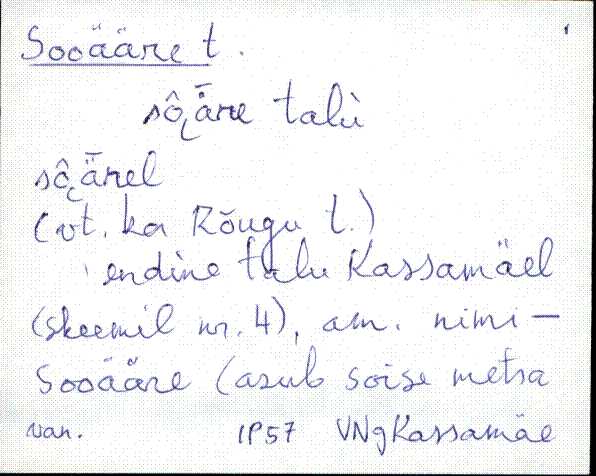 Sooääre t.
sô̬ǟre talù
sô̬ǟrel
(vt. ka Rõugu t.)
endìne talu Kassamäel
(skeemil nr. 4), am. nimi –
Sooääre (asub soise metsa
van. IP57 VNgKassamäe